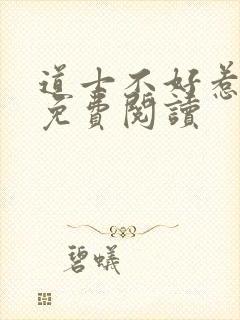 道士不好惹
免費閱讀
碧蟻